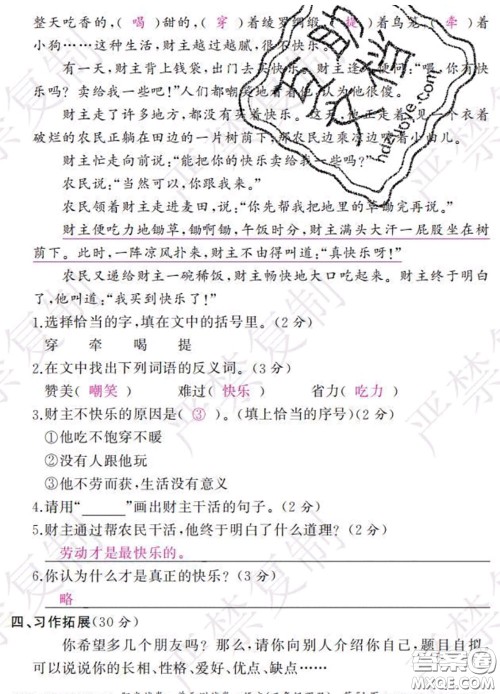 整天吃香的,( 喝 )甜的,( 穿 )着绫罗绸缎,( 提 )着鸟笼,( 牵 )着
小狗……这种生活,财主越过越腻,很不快乐。
有一天,财主背上钱袋,出门去买快乐。财主逢人便问:“喂,你有快
乐吗?卖给我一些吧!”人们都嘲笑地看着他,认为他很傻。
财主走了许多地方,都没有买着快乐。这天,他正走着,见一个衣着
破烂的农民正躺在田边的一片树荫下,那农民边乘凉边哼着小曲儿。
财主忙走向前说:“能把你的快乐卖给我一些吗?”
农民说:“当然可以,你跟我来。”
农民领着财主走进麦田,说:“你先帮我把地里的草锄完再说。”
财主便吃力地锄草,锄啊锄,午饭时分,财主满头大汗一屁股坐在树
荫下。此时,一阵凉风扑来,财主不由得叫道:“真快乐呀!”
农民又递给财主一碗稀饭,财主畅快地大口吃起来。财主终于明白
了,他叫道:“我买到快乐了!”
1.选择恰当的字,填在文中的括号里。(2分)
穿 牵 喝 提
2.在文中找出下列词语的反义词。(3分)
赞美( 嘲笑 ) 难过( 快乐 ) 省力( 吃力 )
3.财主不快乐的原因是( ③ )。(填上恰当的序号)(2分)
①他吃不饱穿不暖
②没有人跟他玩
③他不劳而获,生活没有意义
4.请用“______”画出财主干活的句子。(2分)
5.财主通过帮农民干活,他终于明白了什么道理?(2分)
劳动才是最快乐的。
6.你认为什么才是真正的快乐?(3分)
略
四、习作拓展(30分)
你希望多几个朋友吗?那么,请你向别人介绍你自己,题目自拟
可以说说你的长相、性格、爱好、优点、缺点……
严禁复制
作业帮助
hdzuoye.com
答案圈